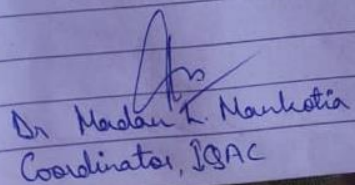 Dr Madan L. Mankotia
Coordinator, IQAC